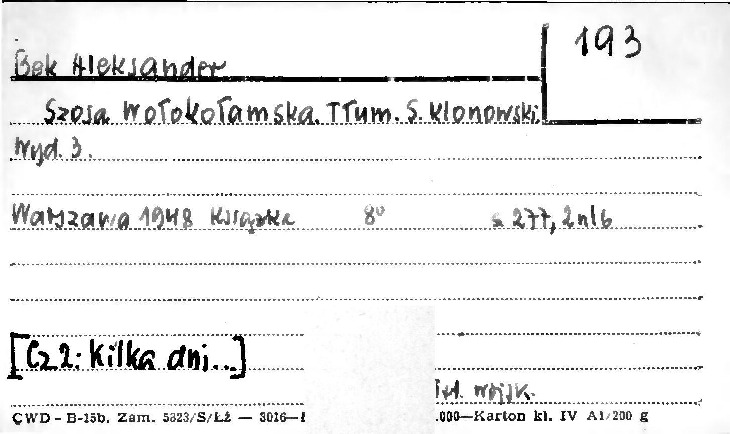 193
Bek Aleksander
Szosa Wołokołamska. Tłum. S. Klonowski.
Wyd. 3.
Warszawa 1948 Książka 8° s 277, 2 nlb
[Cz 2: Kilka dni...]
wojsk.
CWD - B-15b. Zam. 5823/S/Łż — 3016— .000—Karton kl. IV A1/200 g